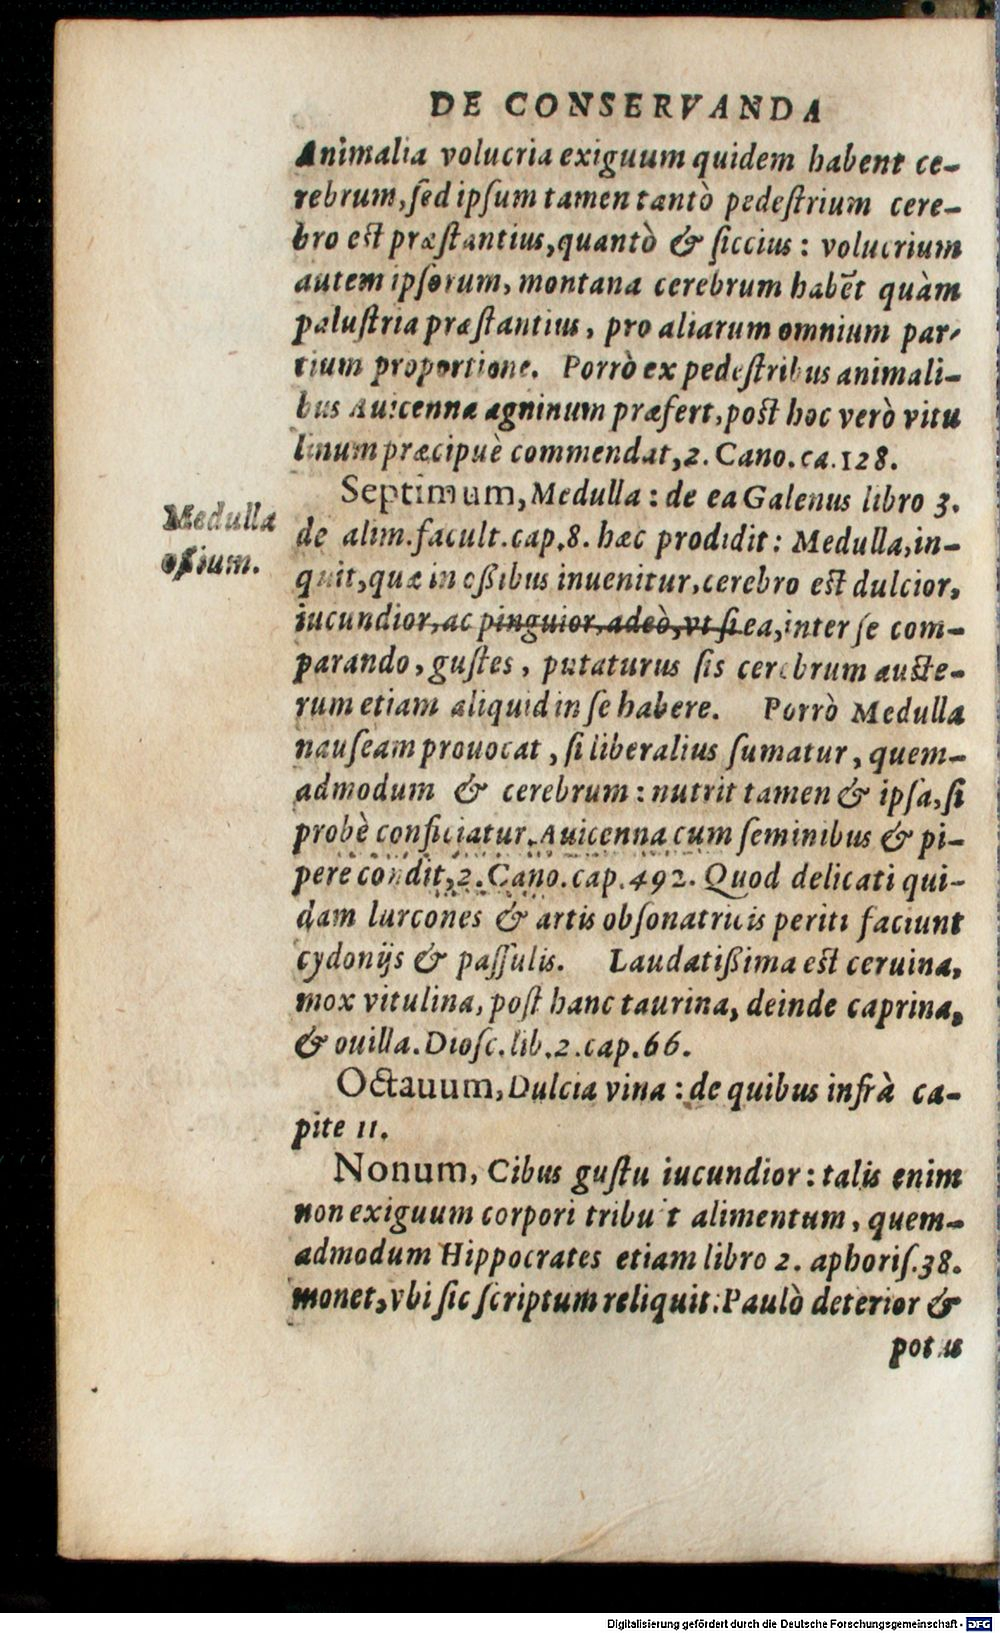 DE CONSERVANDA
Animalia volucria exiguum quidem habent ce-
rebrum, ſed ipſum tamen tantò pedeſtrium cere-
bro eſt præſtantius, quantò & ſiccius: volucrium
autem ipſorum, montana cerebrum habēt quàm
paluſtria præſtantius, pro aliarum omnium par-
tium proportione. Porrò ex pedeſtribus animali-
bus Auicenna agninum præfert, poſt hoc verò vitu
linum præcipuè commendat, 2. Cano. ca. 128.
Septimum, Medulla: de ea Galenus libro 3.
Medulla
oſsium.
de alim. facult. cap. 8. hæc prodidit: Medulla, in-
quit, quæ in oßibus inuenitur, cerebro eſt dulcior,
iucundior, ac pinguior, adeò, vt ſi ea, inter ſe com-
parando, guſtes, putaturus ſis cerebrum auſte-
rum etiam aliquid in ſe habere. Porrò Medulla
nauſeam prouocat, ſi liberalius ſumatur, quem-
admodum & cerebrum: nutrit tamen & ipſa, ſi
probè conficiatur. Auicenna cum ſeminibus & pi-
pere condit, 2. Cano. cap. 492. Quod delicati qui-
dam lurcones & artis obſonatricis periti faciunt
cydonijs & paſſulis. Laudatißima eſt ceruina,
mox vitulina, poſt hanc taurina, deinde caprina,
& ouilla. Dioſc. lib. 2. cap. 66.
Octauum, Dulcia vina: de quibus infrà ca-
pite 11.
Nonum, Cibus guſtu iucundior: talis enim
non exiguum corpori tribuit alimentum, quem-
admodum Hippocrates etiam libro 2. aphoriſ. 38.
monet, vbi ſic ſcriptum reliquit: Paulò deterior &
potus
Digitalisierung gefördert durch die Deutsche Forschungsgemeinschaft - DFG